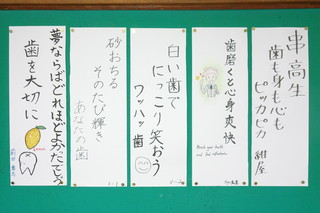 串高生
歯も身も心も
ピッカピカ
紺屋
歯磨くと心身爽快
Brush your teeth
and feel refreshed.
白い歯で
にっこり笑おう
ワッハッ歯
砂おちる
そのたび輝き
あなたの歯
夢ならばどれほどよかったでしょう
歯を大切に